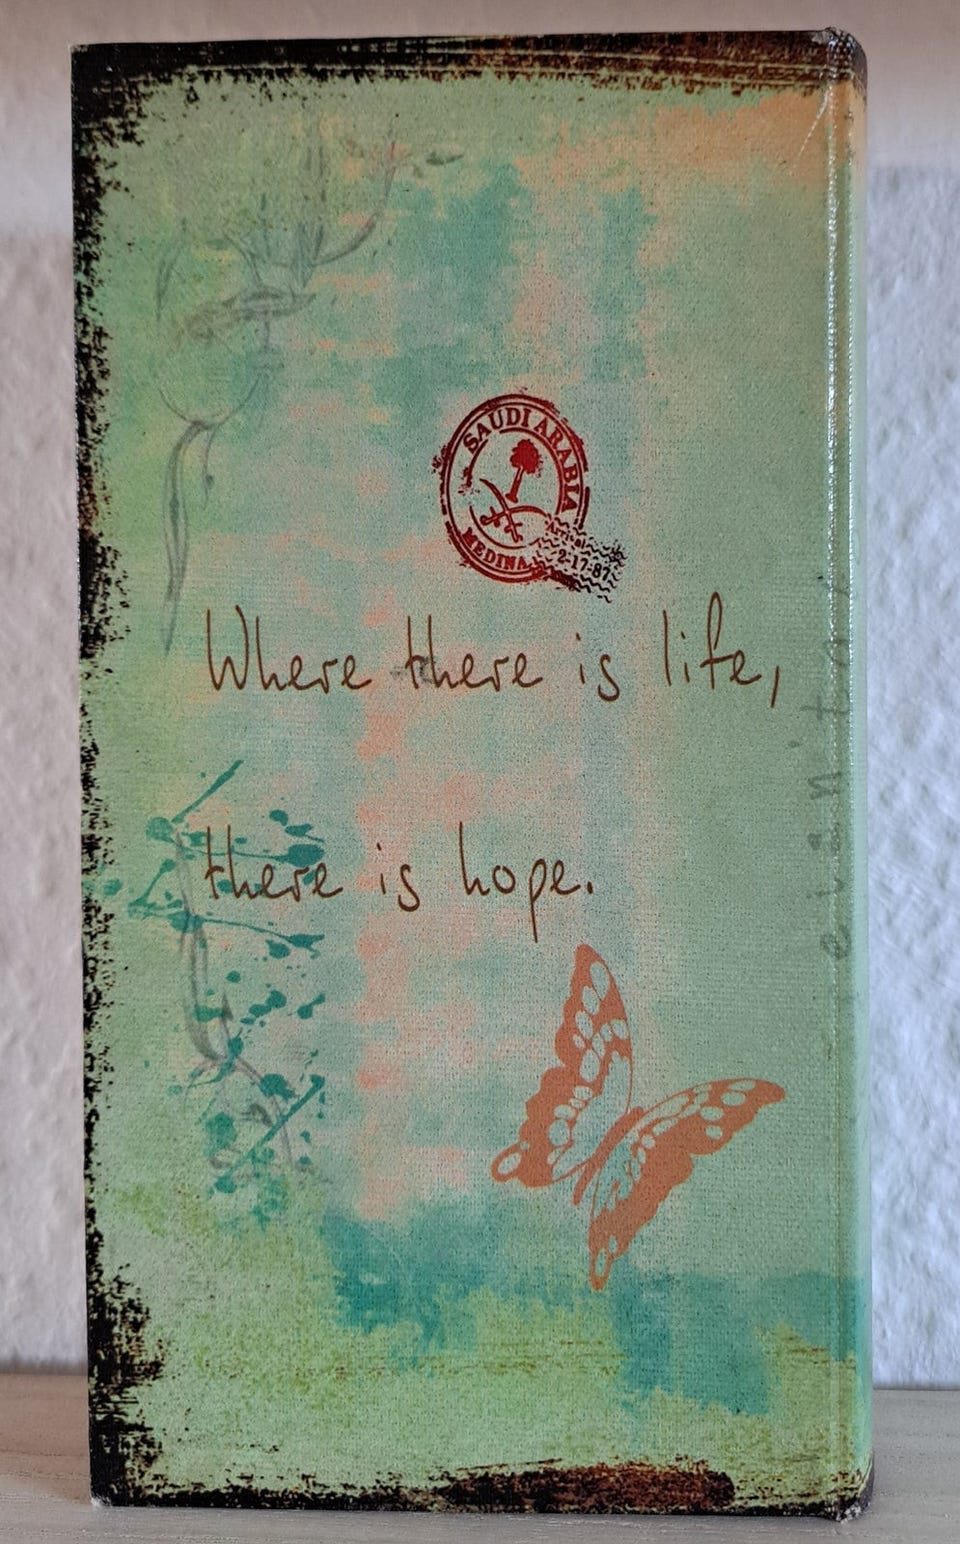 SAUDI ARABIA
MEDINA
2-17-87
Where there is life,
there is hope.